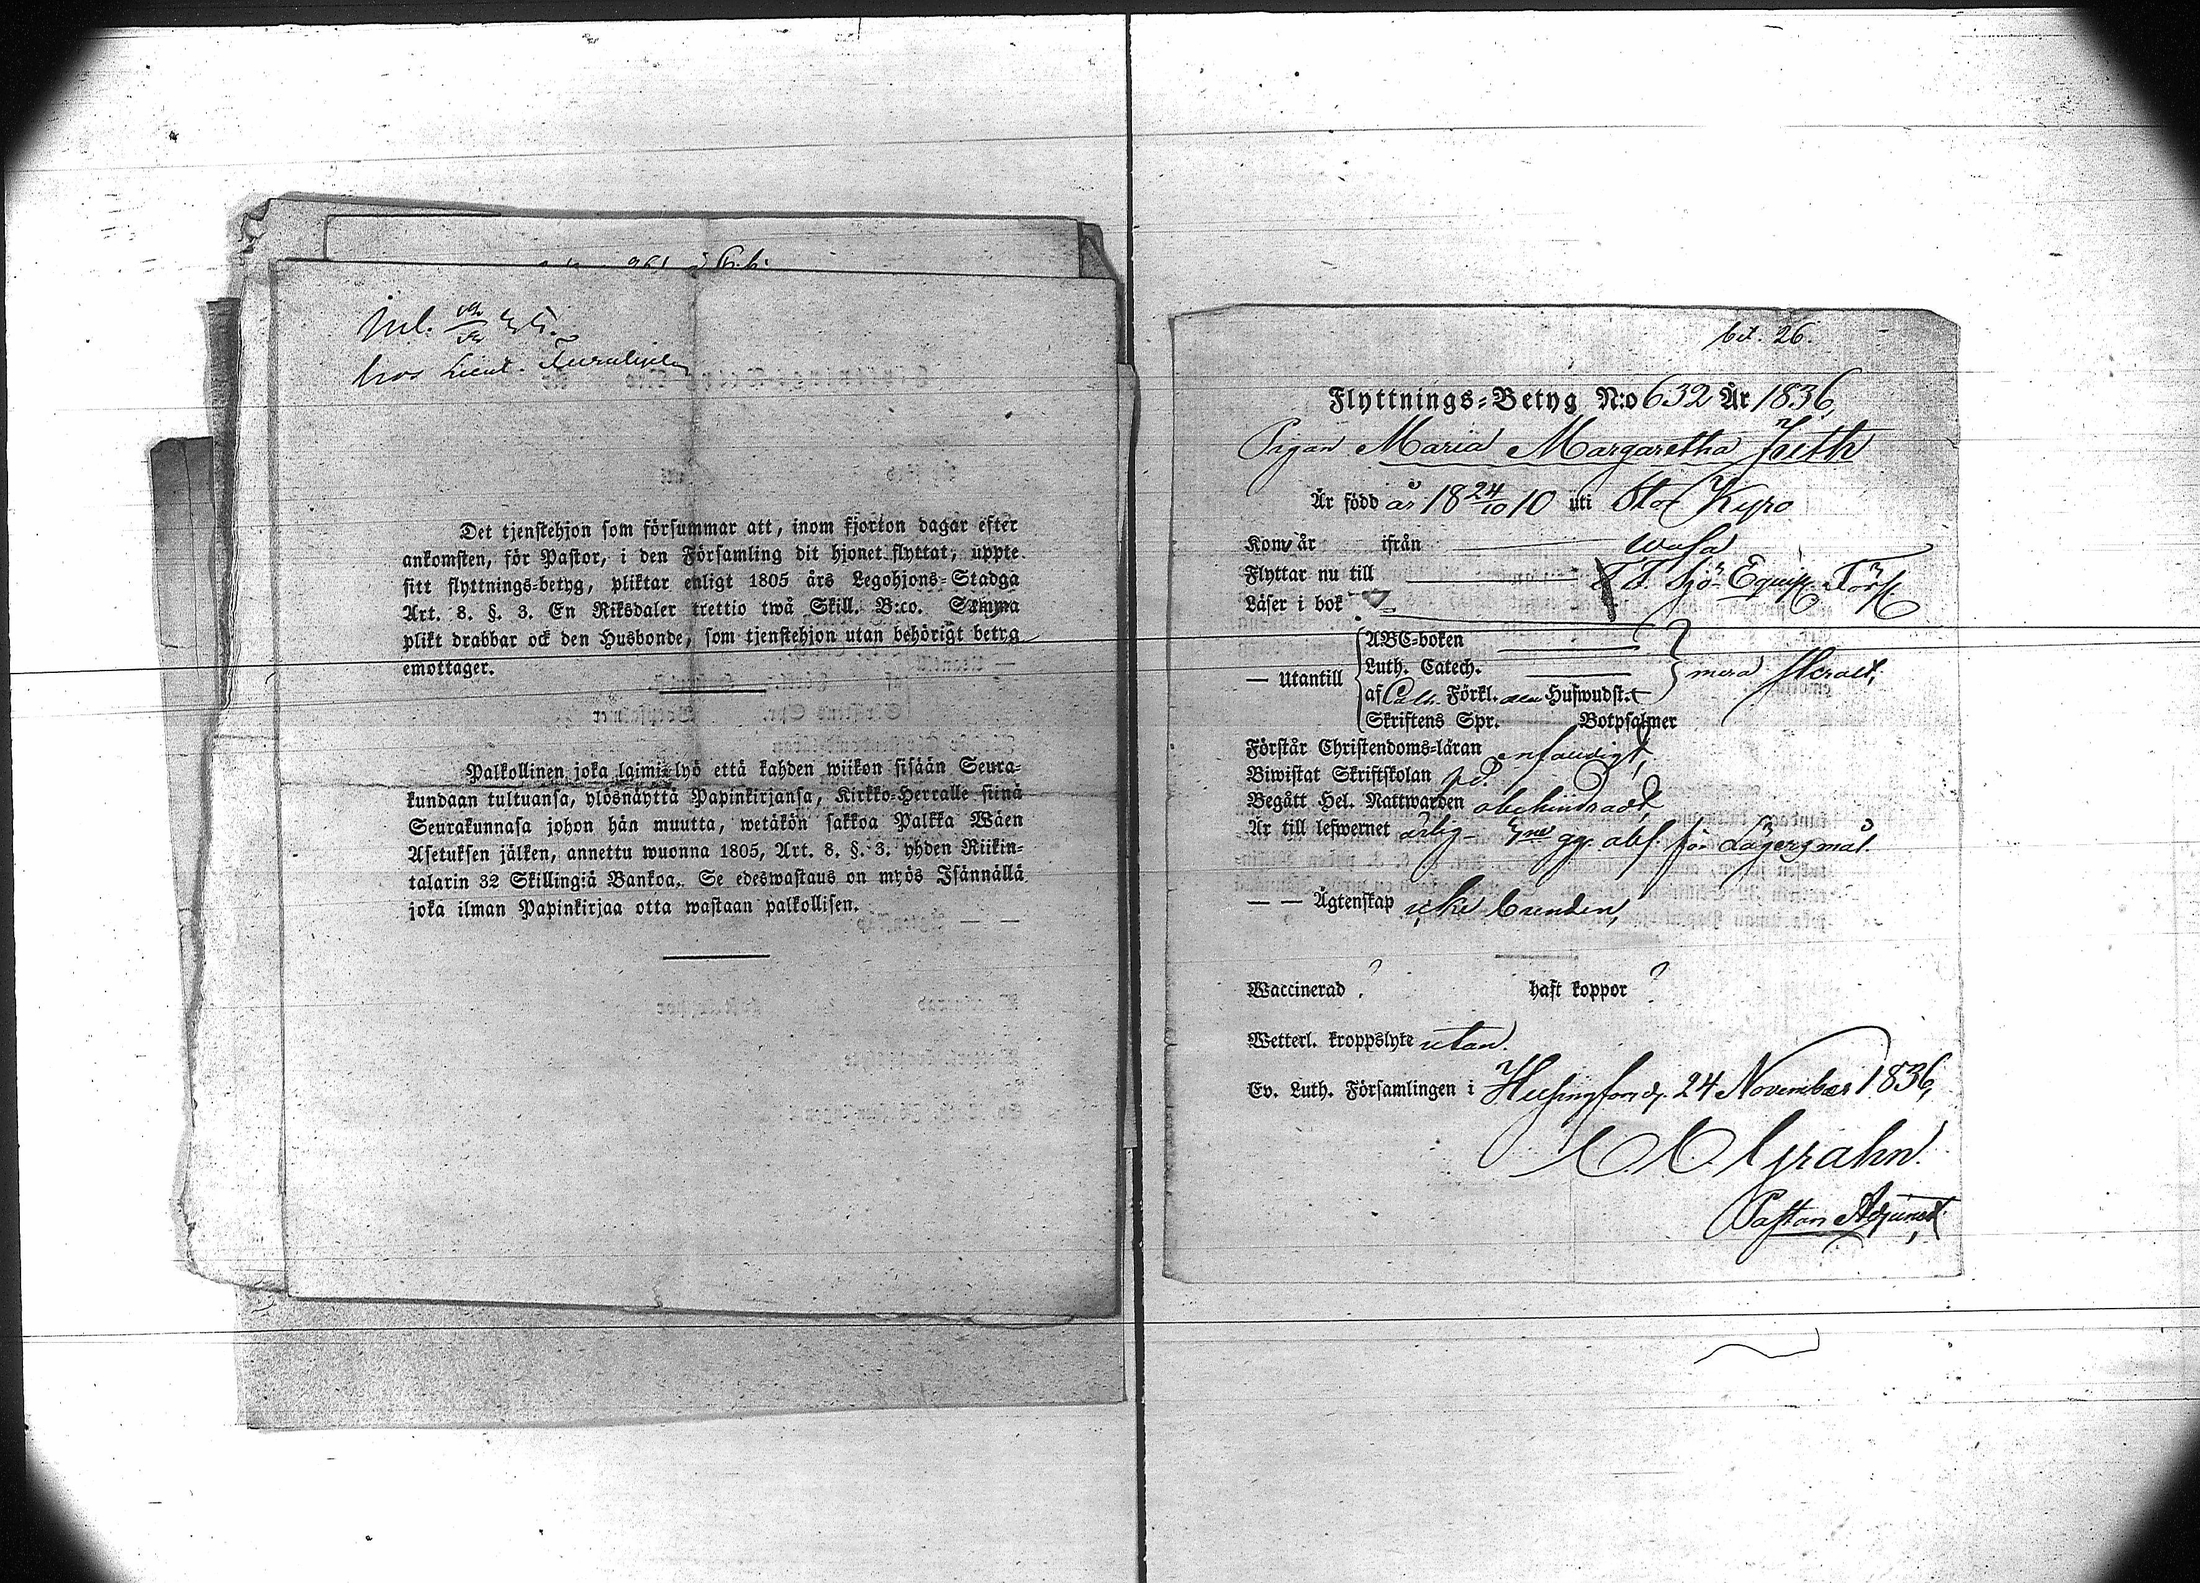 hos Lieut.
Det tjenstehjon som försummar att, inom fjorton dagar efter
ankomsten, för Pastor, i den Församling dit hjonet flyttat, uppte
sitt flyttnings-betyg, pliktar enligt 1805 års Legohjons-Stadga
Art. 8. §. 3. En Riksdaler trettio twå Skill. B:co. Samma
plikt drabbar ock den Husbonde, som tjenstehjon utan behörigt betyg
emottager.
Palkollinen joka laimi lyö että kahden wiikon sisään Seura-
kundaan tultuansa, ylösnäyttä Papinkirjansa, Kirkko-Herralle siinä
Seurakunnasa johon hän muutta, wetäkön sakkoa Palkka Wäen
Asetuksen jälken, annettu wuonna 1805, Art. 8. §. 3. yhden Riikin-
talarin 32 Skillingiä Bankoa. Se edeswastaus on myös Isännällä
joka ilman Papinkirjaa otta wastaan palkollisen.
bet. 26.
Flyttnings-Betyg N:o 632 År 1836,
Pigan Maria Margaretha
Är född år 18 24/10 10 uti Stor Kyro
Kom år ifrån Wasa
Flyttar nu till Sjö Equip.
Läser i bok
— Utantill ABC-boken
Luth. Catech.
af Förkl. Huswudst.
Skriftens Spr. Botpsalmer
Förstår Christendoms-läran enfaldigt,
Biwistat Skriftskolan
Begått Hel. Nattwarden obehindrad,
Är till lefwernet ärlig abs. för Lägersmål.
— — Ägtenskap icke bunden,
Waccinerad ? haft koppor ?
Wetterl. kroppslyte utan.
Ev. Luth. Församlingen i Helsingfors d. 24 November 1836,
Grahn.
Pastors Adjunct